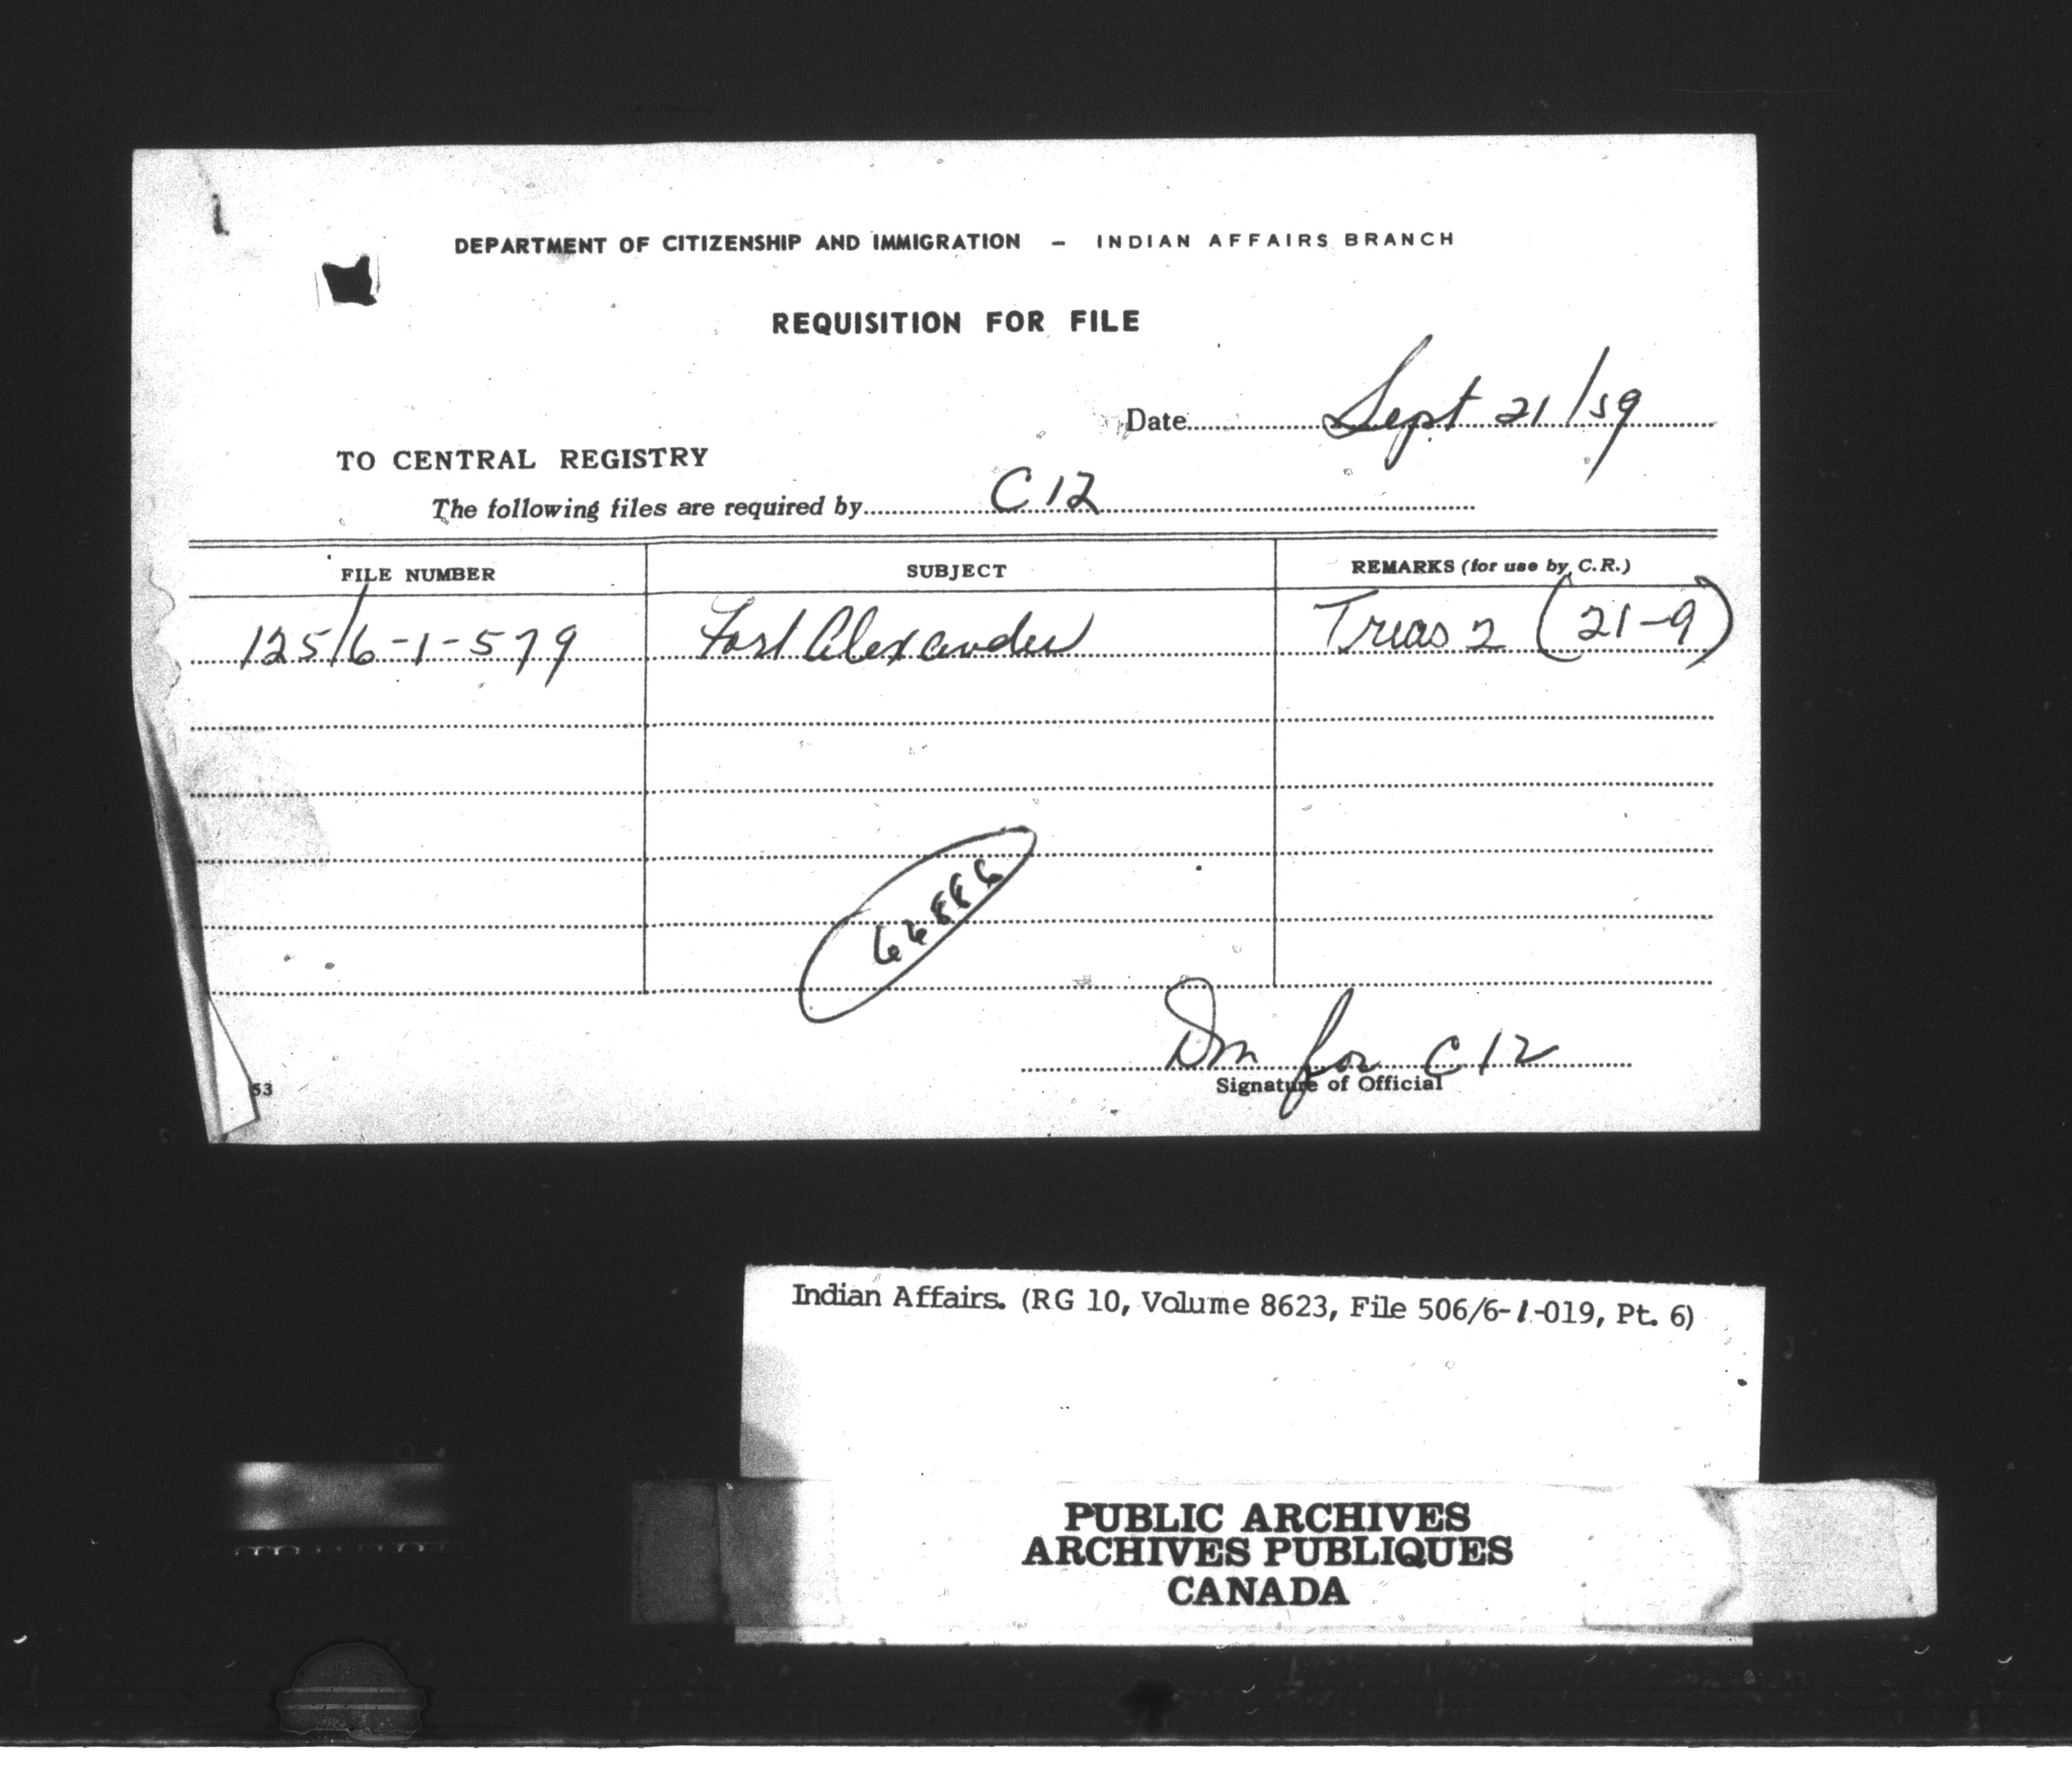 DEPARTMENT OF CITIZENSHIP AND IMMIGRATION – INDIAN AFFAIRS BRANCH
REQUISITION FOR FILE
Date Sept 21/59
TO CENTRAL REGISTRY
The following files are required by C12
FILE NUMBER SUBJECT REMARKS (for use by C.R.)
125/6-1-579 Fort Alexander Treas 2 (21-9)
66886
Dm for C12
Signature of Official
53
Indian Affairs. (RG 10, Volume 8623, File 506/6-1-019, Pt. 6)
PUBLIC ARCHIVES
ARCHIVES PUBLIQUES
CANADA